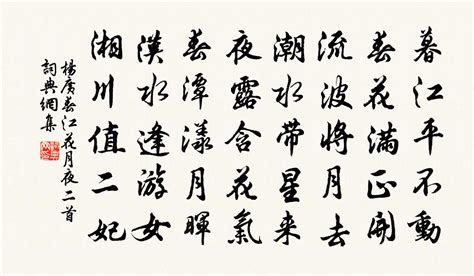 暮江平不動
春花滿正開
流波將月去
潮水帶星來
夜露含花氣
春潭漾月暉
漢水逢游女
湘川值二妃
楊廣春江花月夜二首
詞典網集